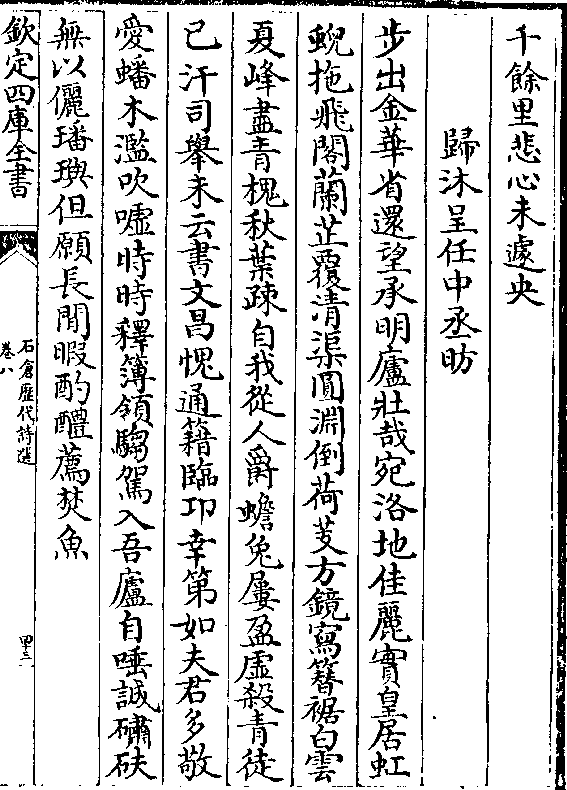 千餘里悲心未遽央
歸沐呈任中丞昉
步出金華省還望承明廬壯哉宛洛地佳麗實皇居虹
蜺拖飛閣蘭芷覆清渠圓淵倒荷芰方鏡寫簪裾白雲
夏峰盡青槐秋葉疎自我從人爵蟾兔屢盈虛殺青徒
已汗司舉未云書文昌愧通籍臨邛幸第如夫君多敬
愛蟠木濫吹噓時時釋簿領騶駕入吾廬自唾誠礪砆
無以儷璠璵但願長閒暇酌醴薦焚魚
欽定四庫全書
石倉歷代詩選
卷八
四三